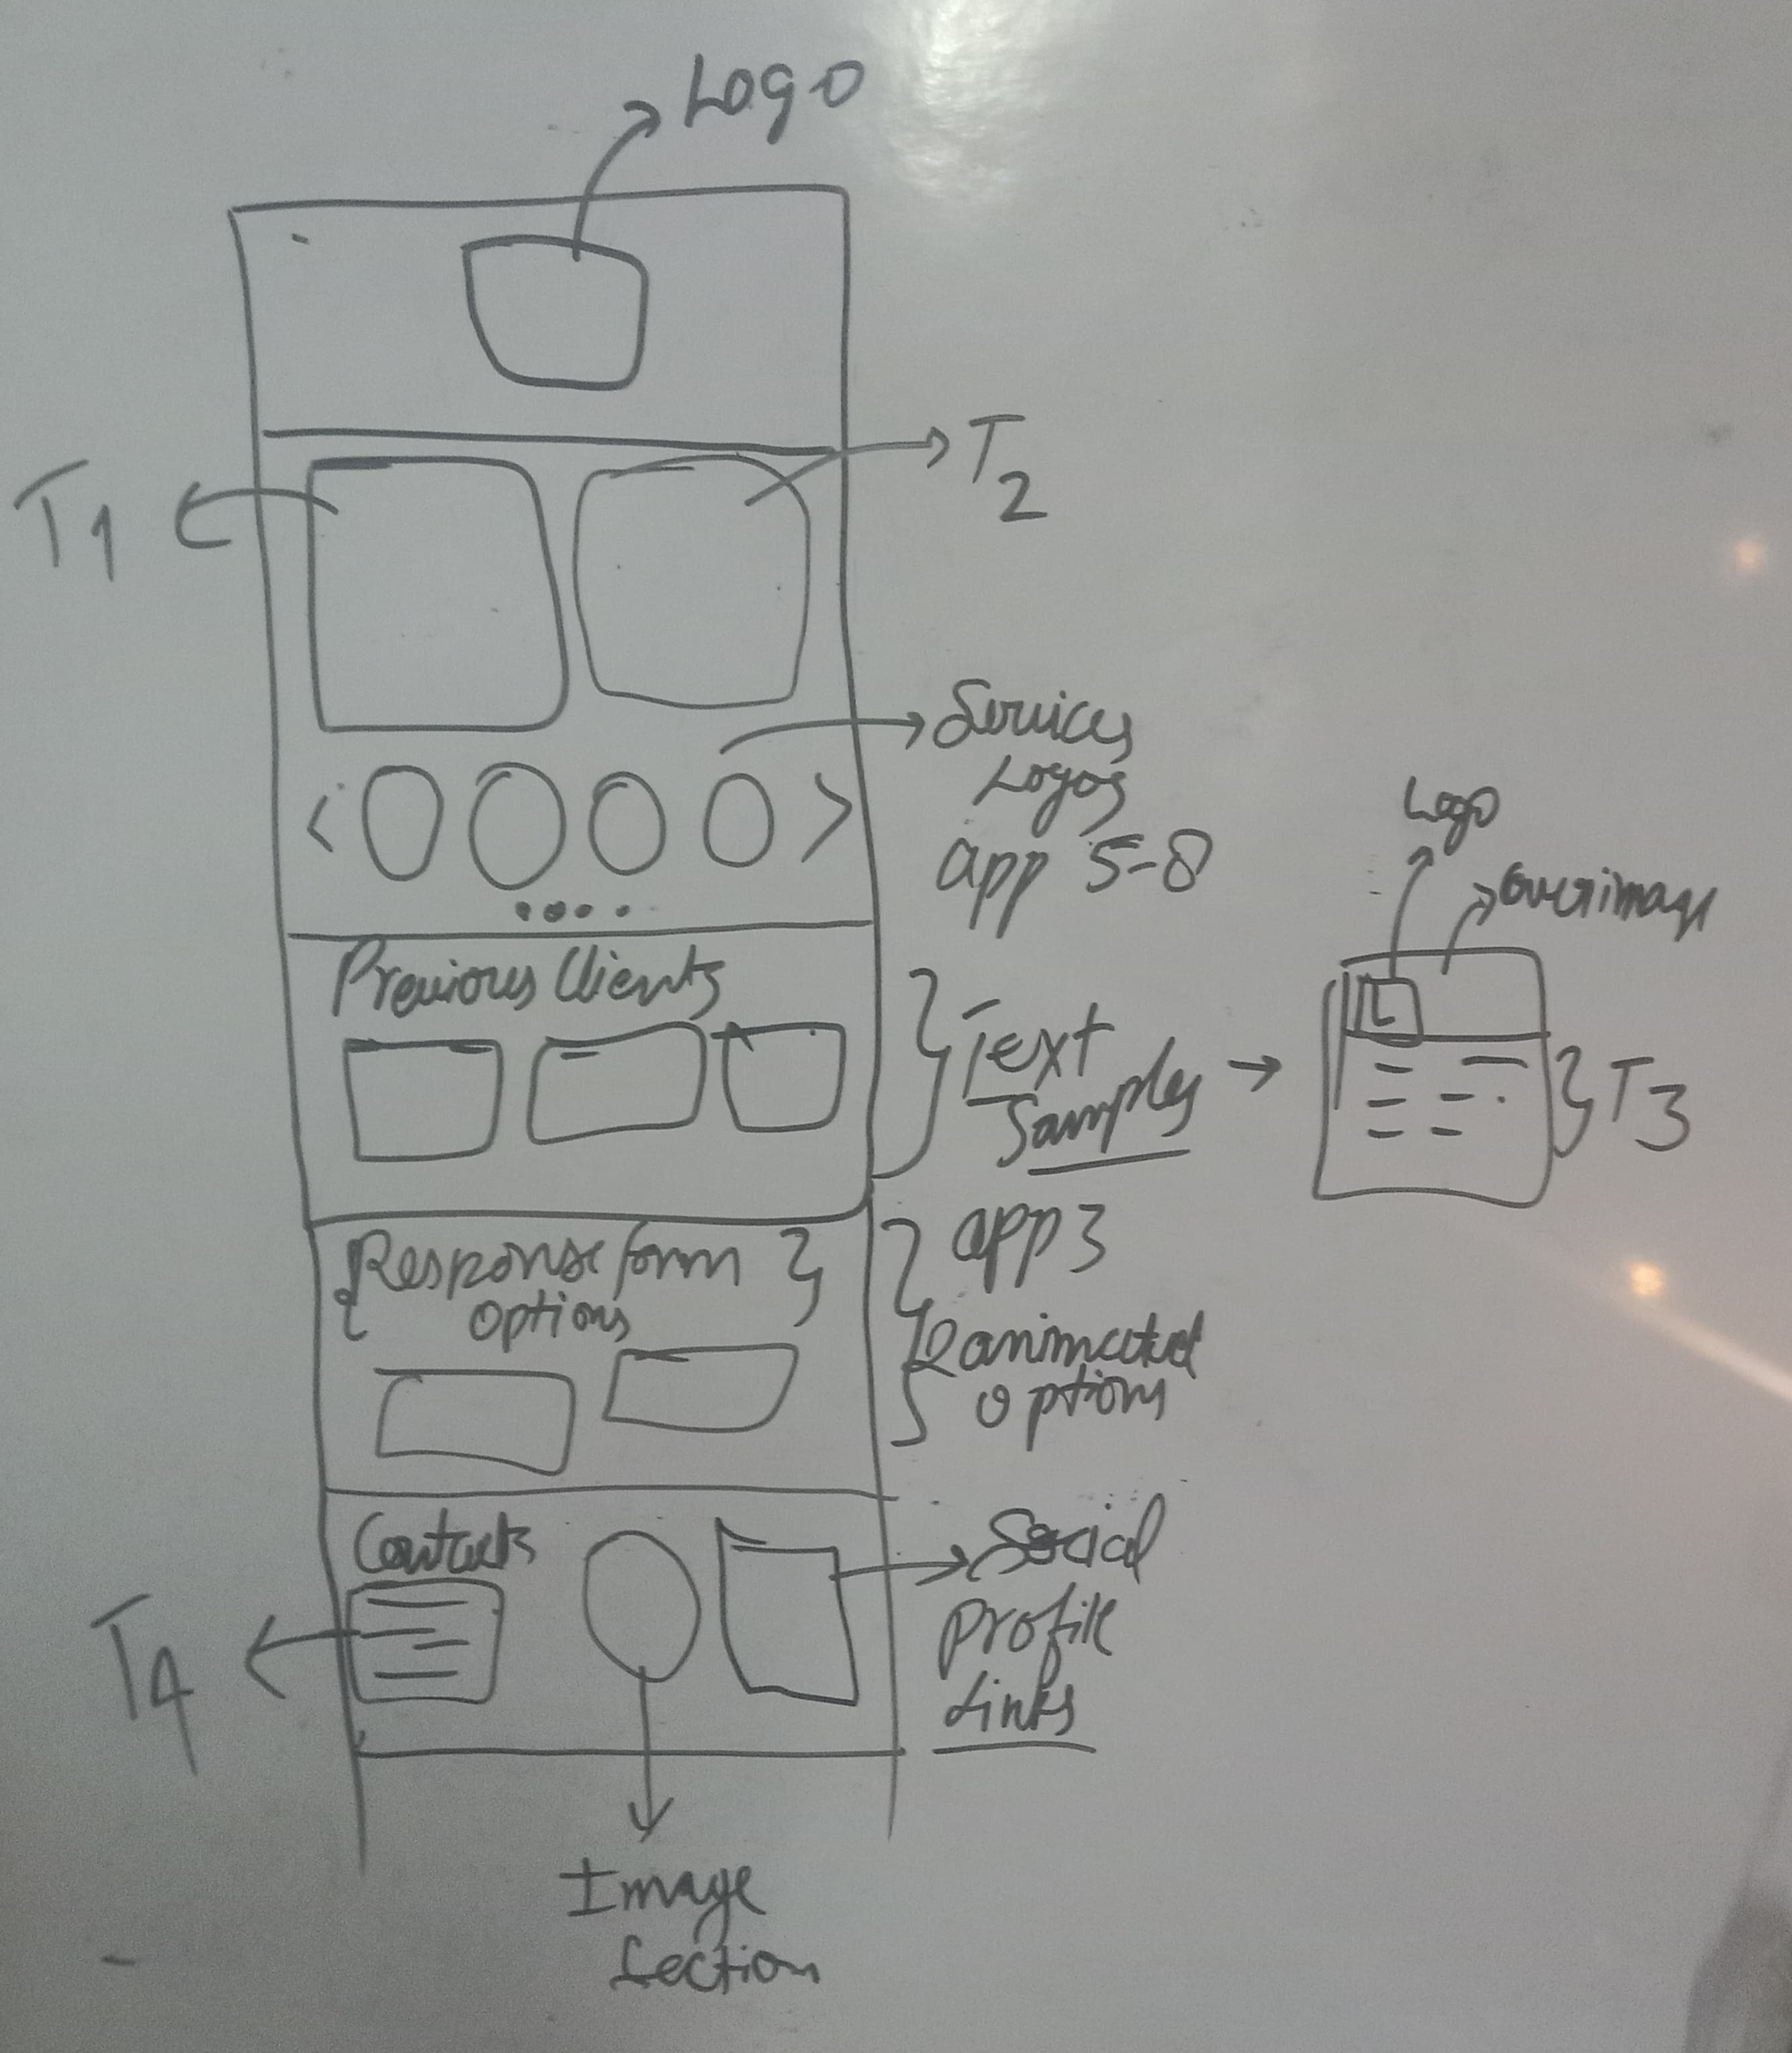 Logo
T1
T2
Services
Logos
app 5-8
Previous Clients
Text
Samples
Logo
L
T3
app 3
Response form
options
2 animated
options
Contacts
T4
Social
profile
Links
Image
Section